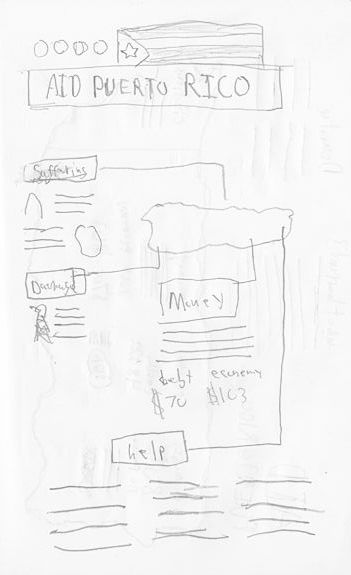 AID PUERTO RICO
Suffering
Damage
Money
debt economy
$70 $103
help